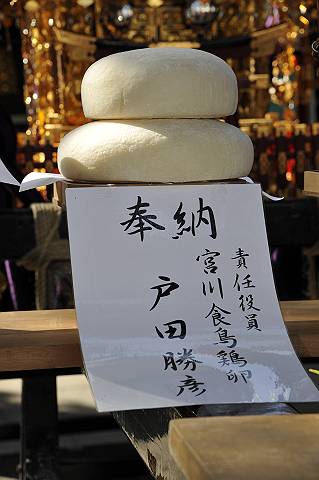 奉納
責任役員
宮川食鳥鶏卵
戸田勝彦